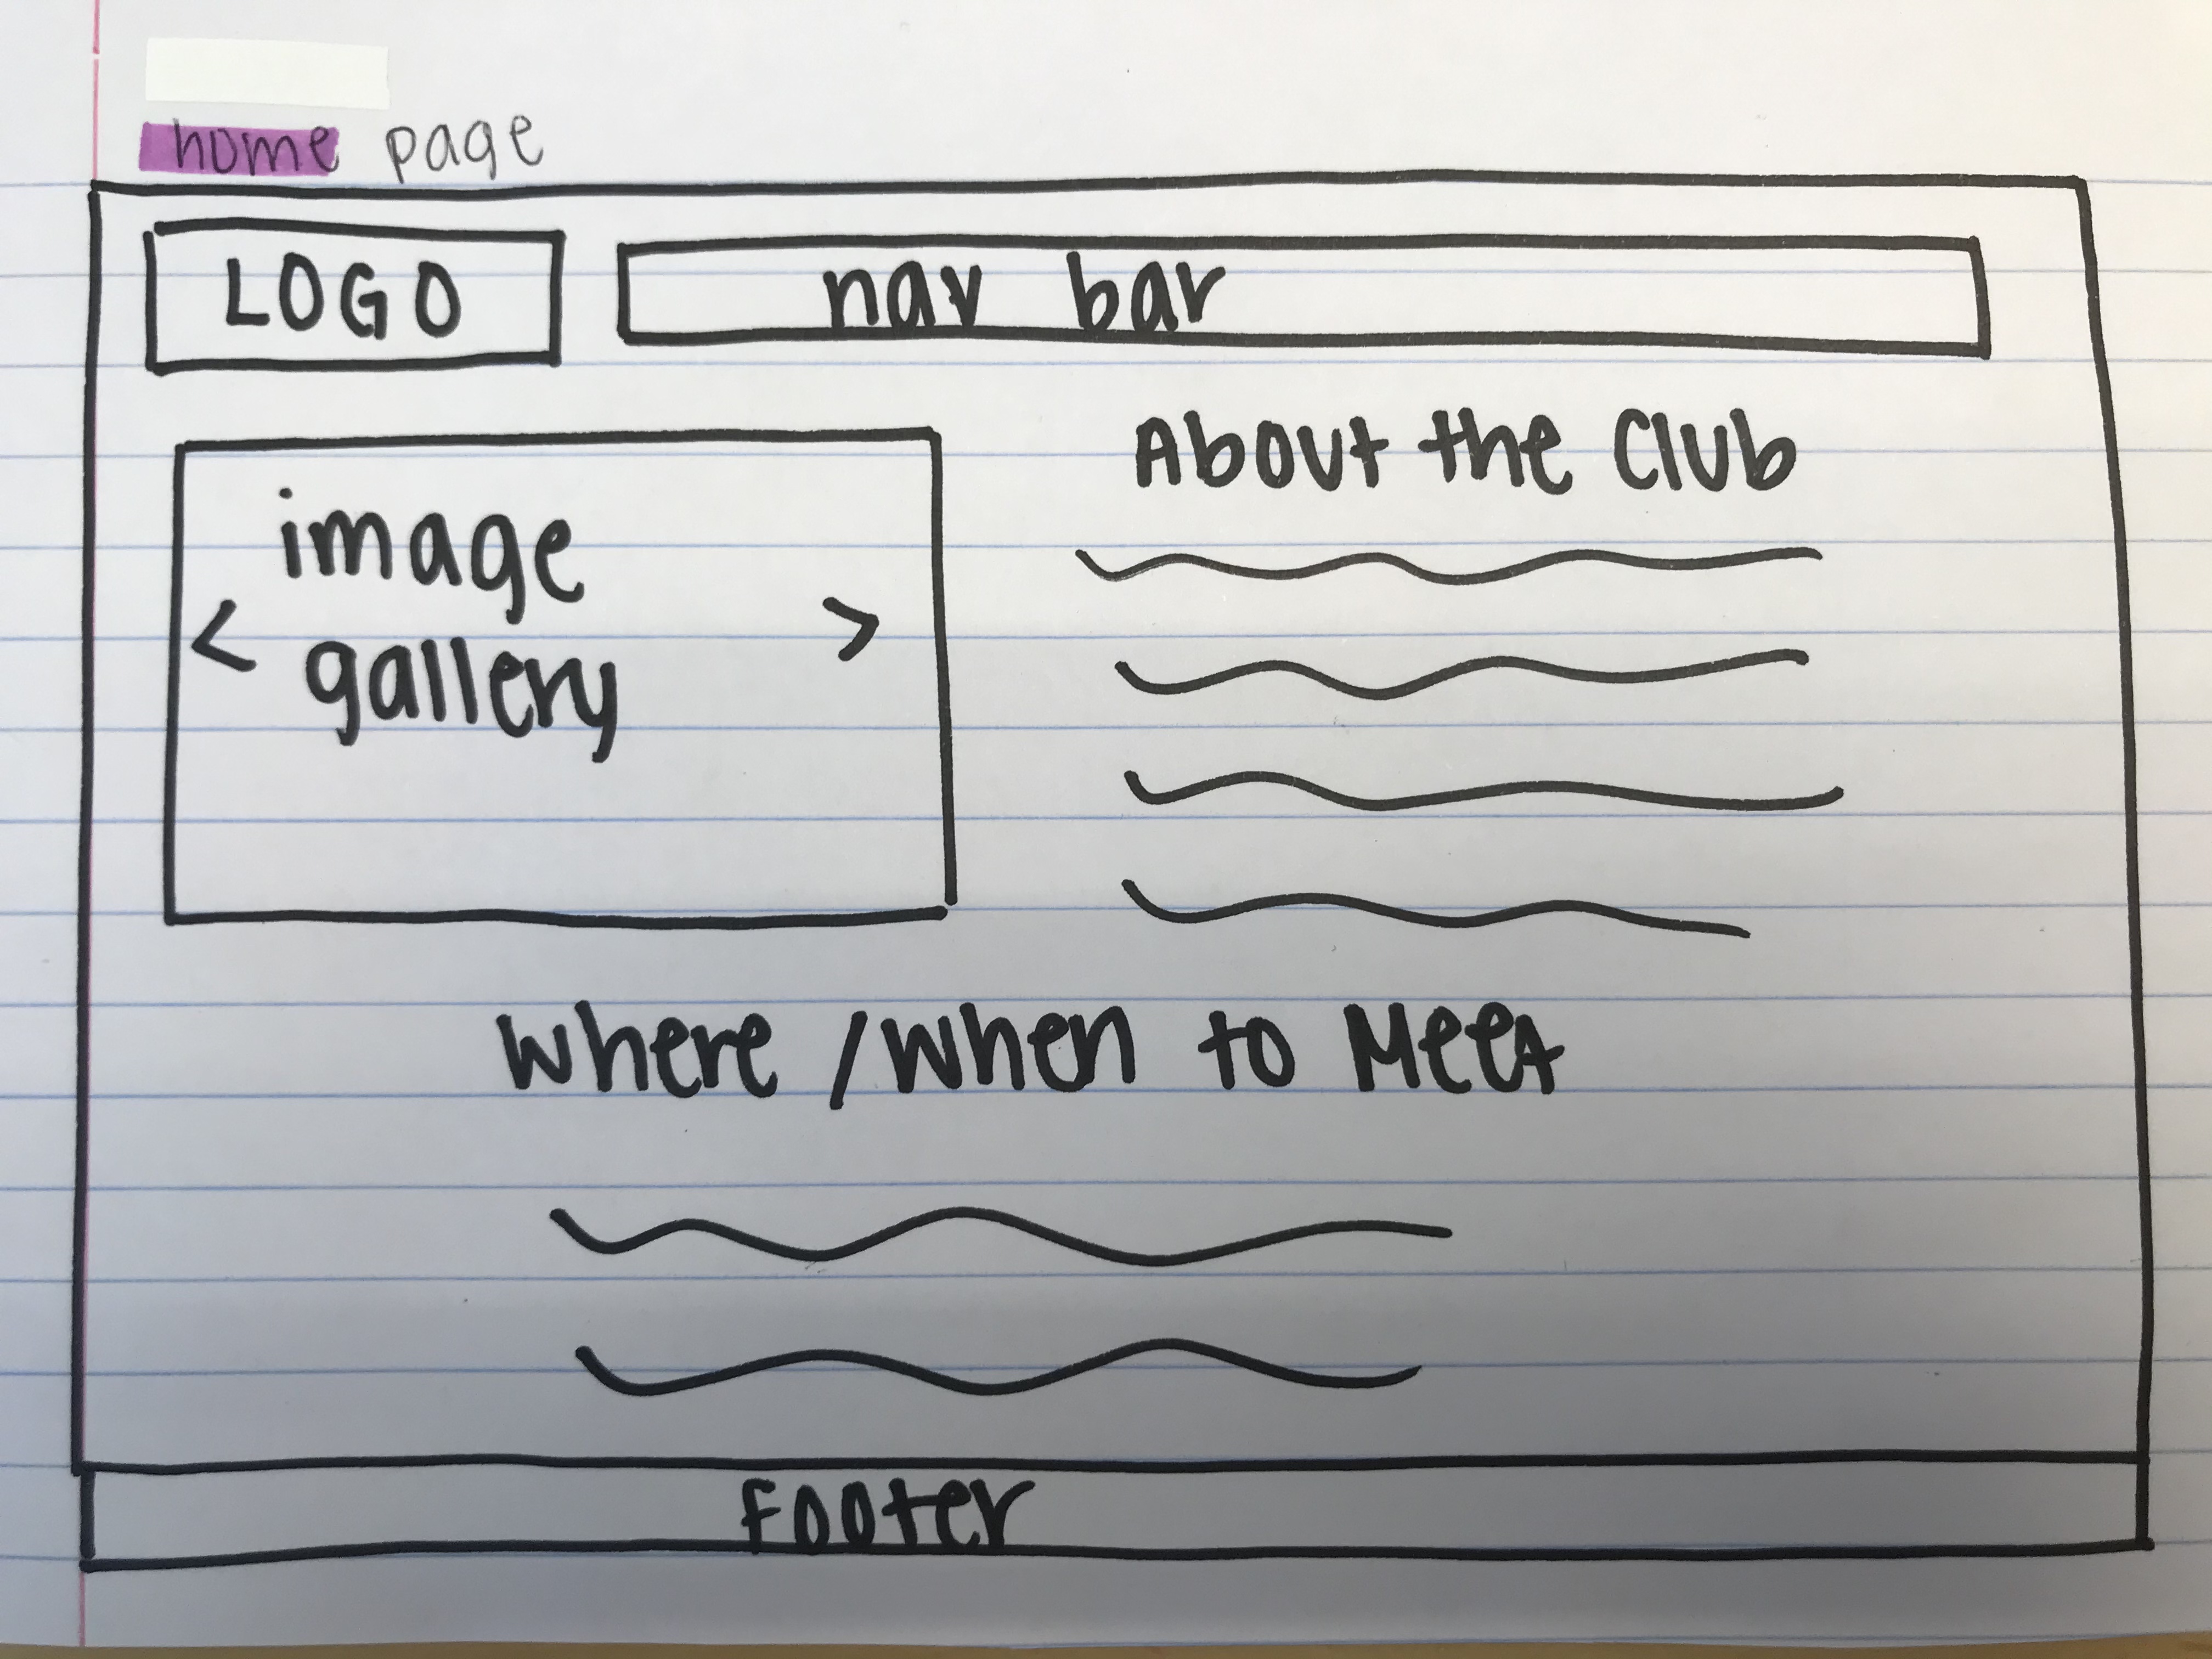 home page
LOGO
nav bar
image
gallery
<
>
About the Club
Where / When to Meet
Footer